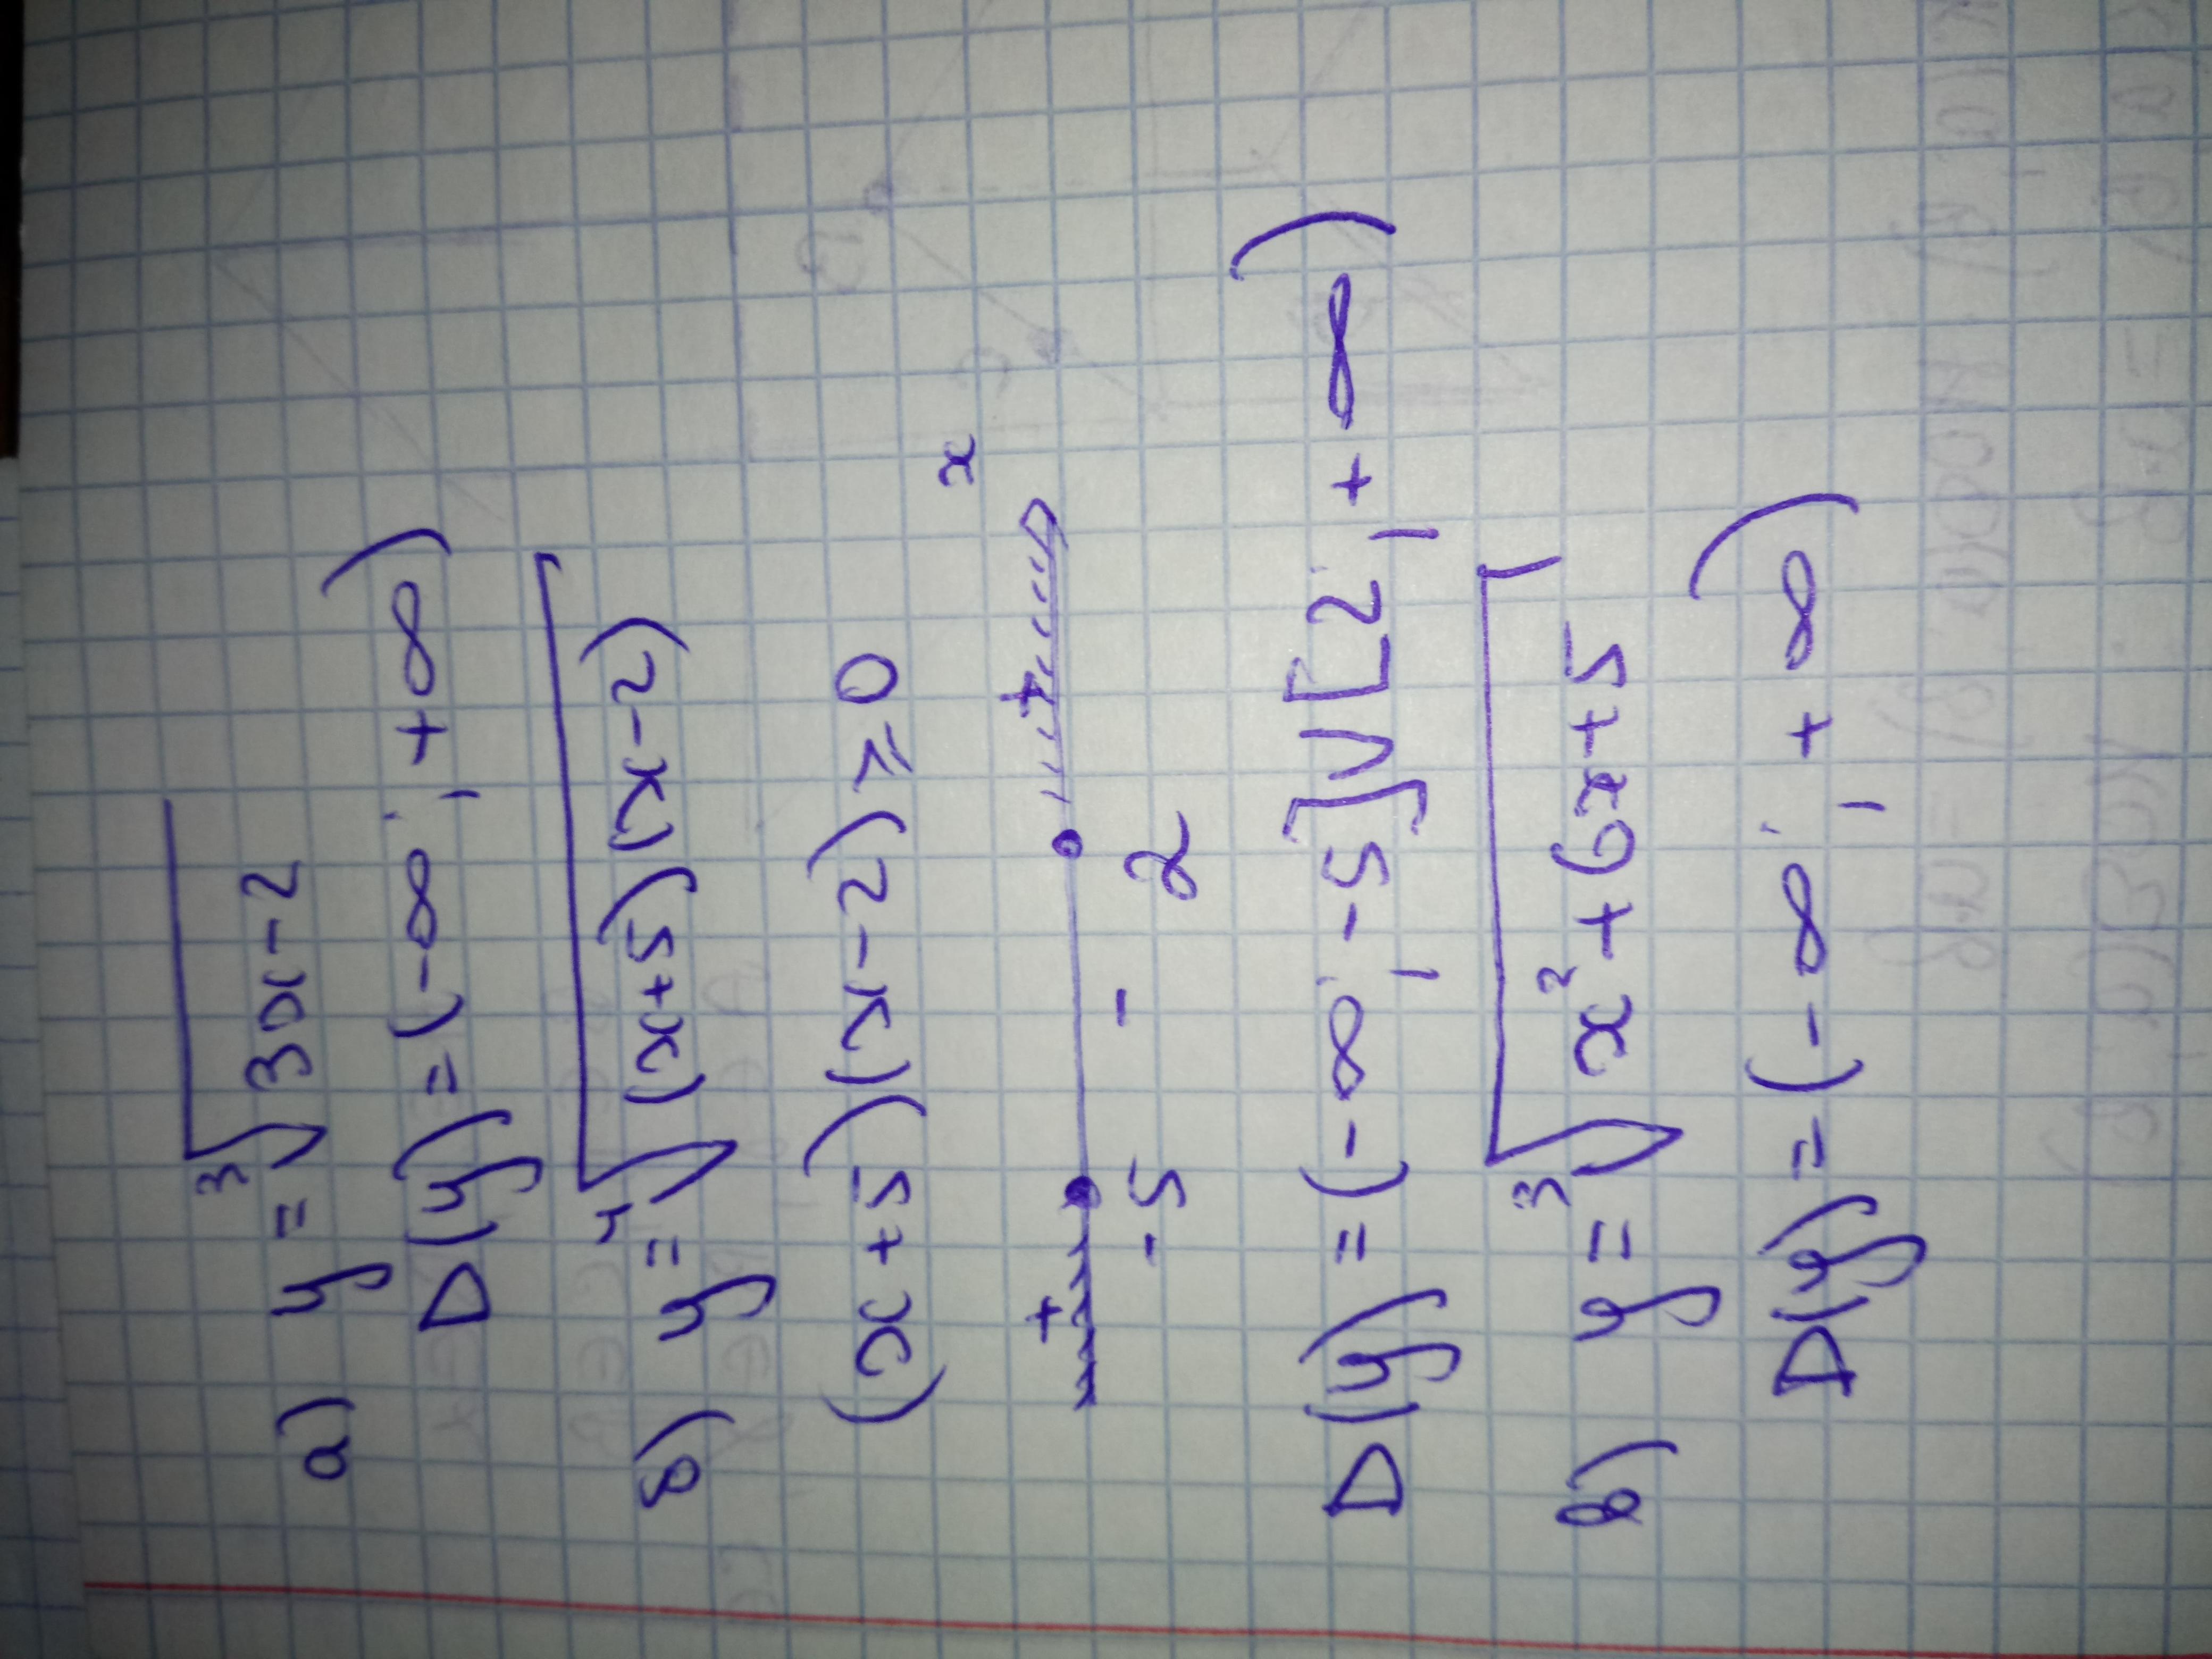 а) y = ∛(3x-2)
D(y) = (-∞; +∞)
б) y = ∜((x+5)(x-2))
(x+5)(x-2) ≥ 0
+ - + x
-5 2
D(y) = (-∞; -5]∪[2; +∞)
в) y = ∛(x²+6x+5)
D(y) = (-∞; +∞)